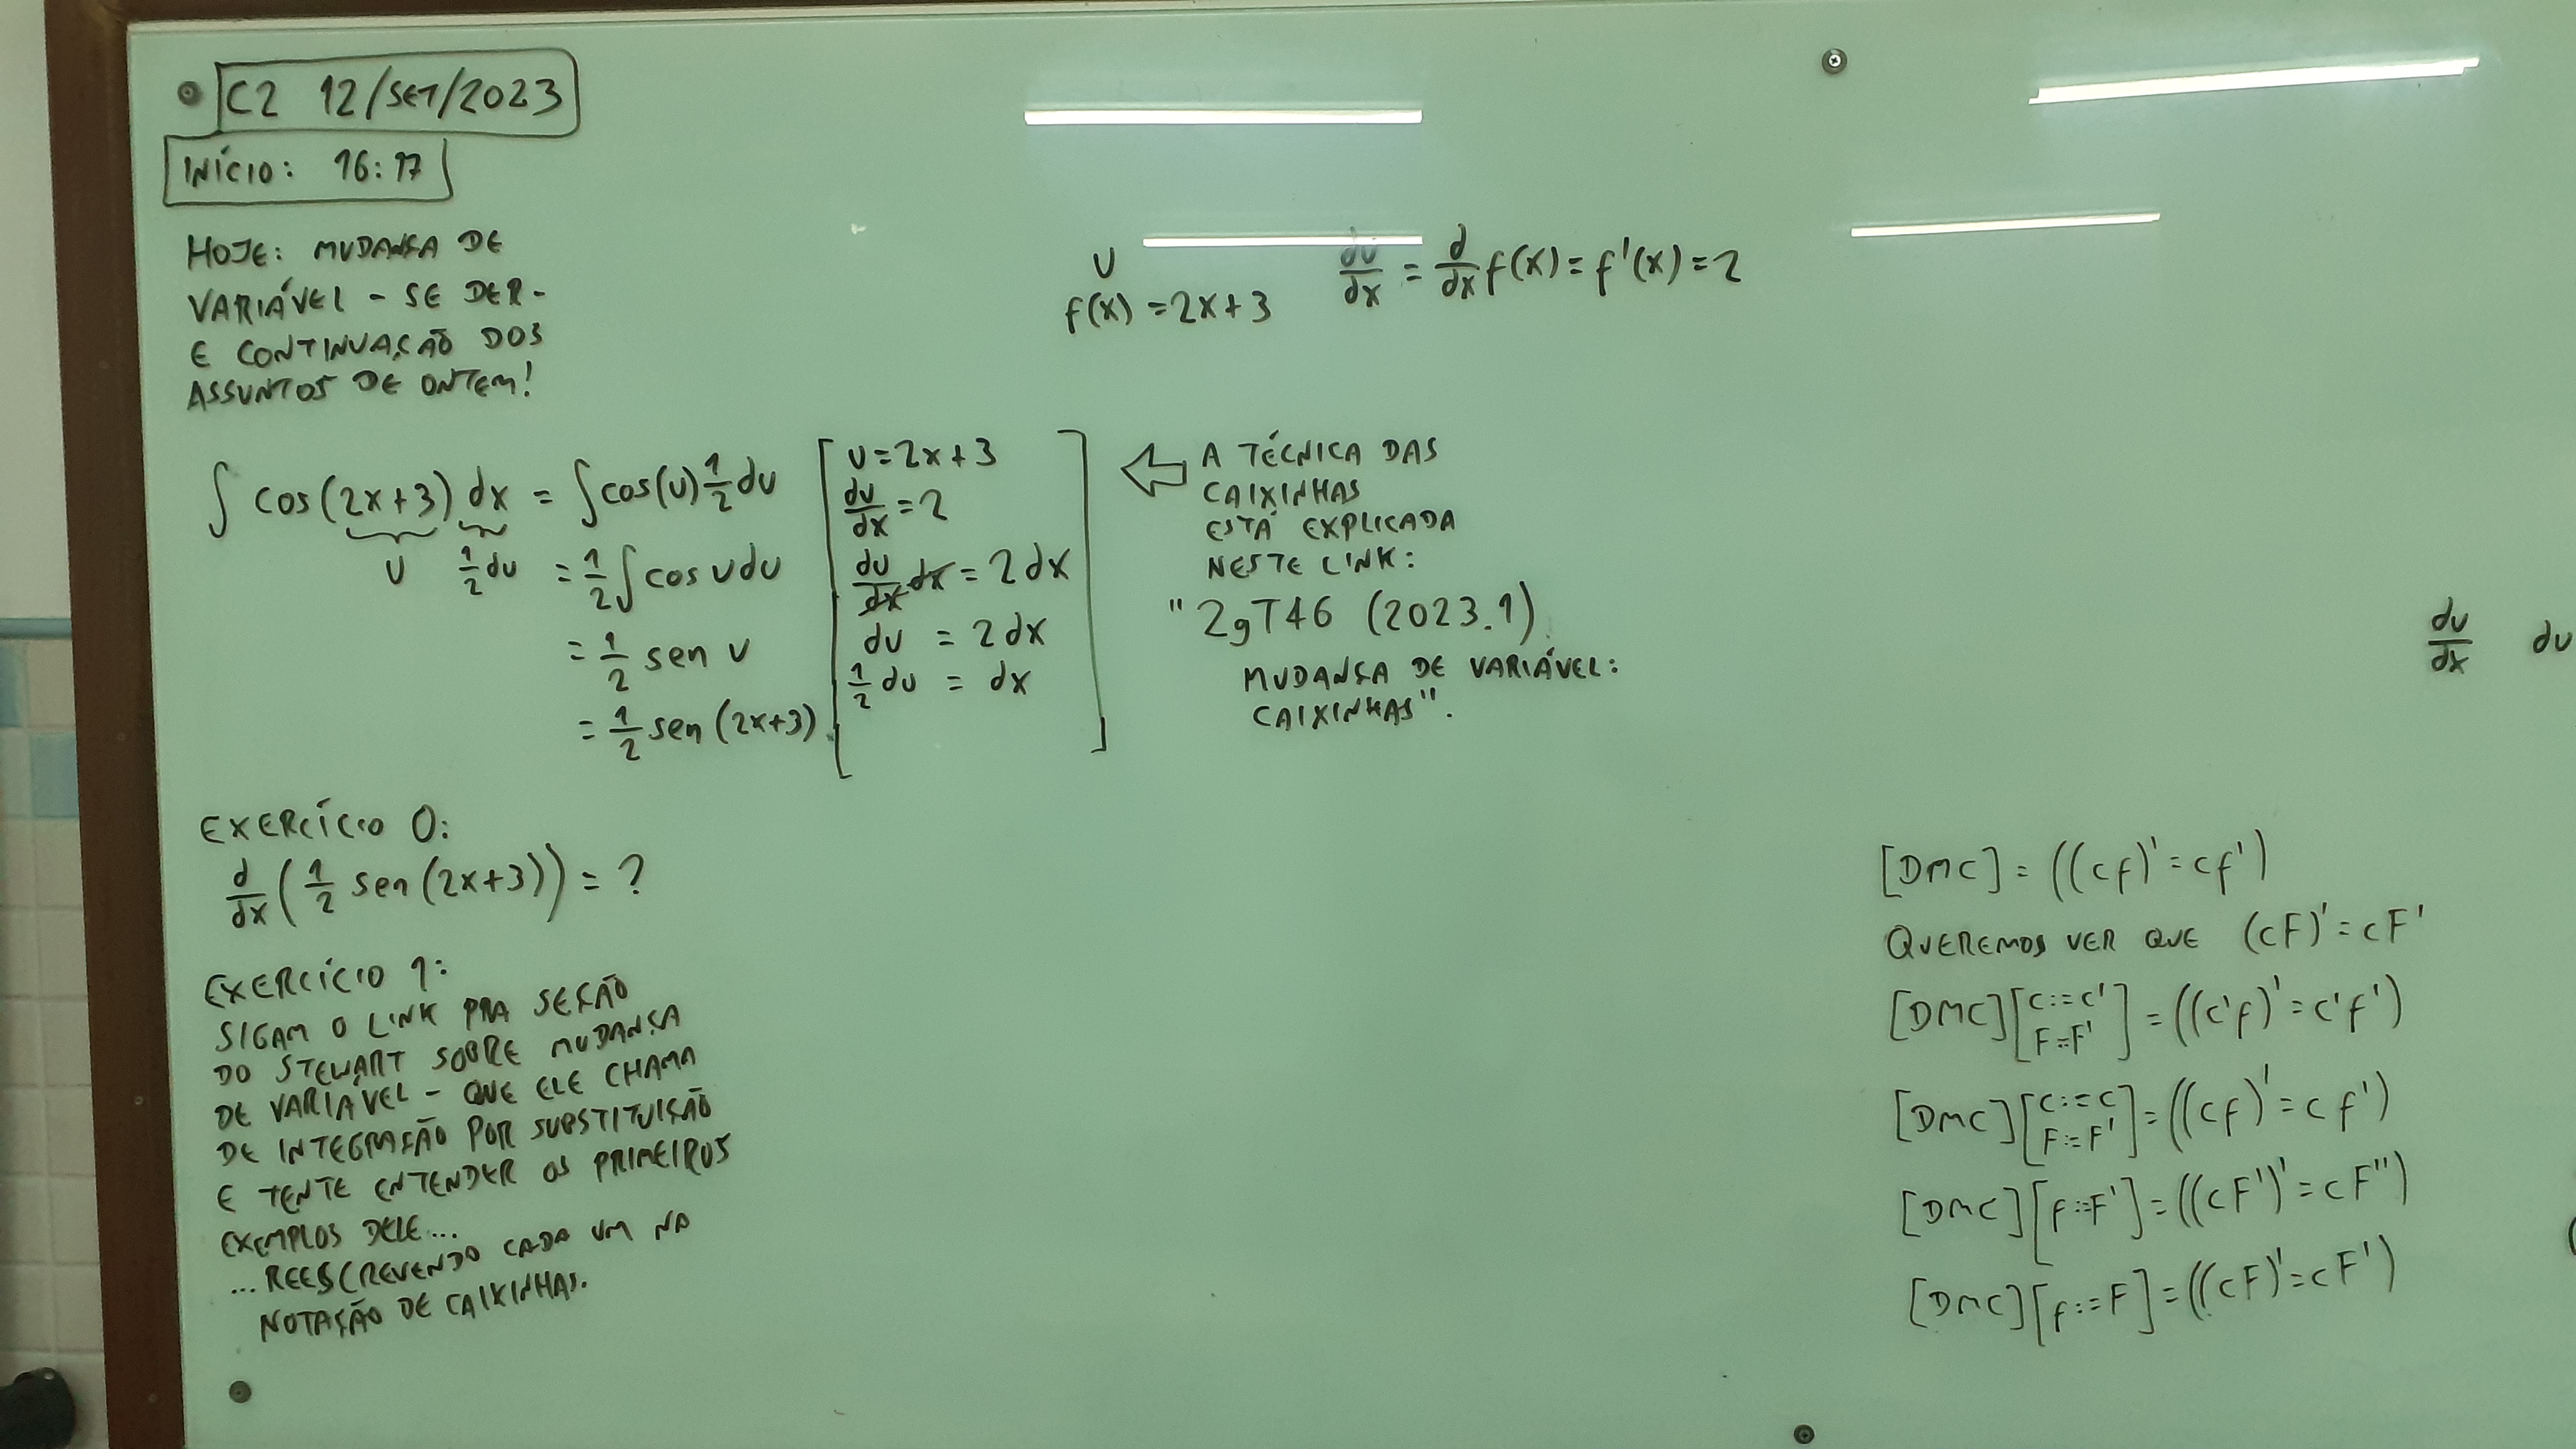 C2 12/SET/2023
INÍCIO: 16:17
HOJE: MUDANÇA DE
VARIÁVEL - SE DER -
E CONTINUAÇÃO DOS
ASSUNTOS DE ONTEM!
U
f(x) = 2x+3
du/dx = d/dx f(x) = f'(x) = 2
∫ cos(2x+3) dx = ∫ cos(u) 1/2 du
u 1/2 du = 1/2 ∫ cos u du
= 1/2 sen u
= 1/2 sen (2x+3).
u = 2x+3
du/dx = 2
du/dx dx = 2dx
du = 2dx
1/2 du = dx
⇐ A TÉCNICA DAS
CAIXINHAS
ESTÁ EXPLICADA
NESTE LINK:
"2gT46 (2023.1)
MUDANÇA DE VARIÁVEL:
CAIXINHAS".
du/dx du
EXERCÍCIO 0:
d/dx (1/2 sen (2x+3)) = ?
EXERCÍCIO 1:
SIGAM O LINK PRA SEÇÃO
DO STEWART SOBRE MUDANÇA
DE VARIÁVEL - QUE ELE CHAMA
DE INTEGRAÇÃO POR SUBSTITUIÇÃO
E TENTE ENTENDER OS PRIMEIROS
EXEMPLOS DELE...
...REESCREVENDO CADA UM NA
NOTAÇÃO DE CAIXINHAS.
[DMC] = ((cf)' = cf')
QUEREMOS VER QUE (cF)' = cF'
[DMC] [c:=c' F:=F'] = ((c'f)' = c'f')
[DMC] [c:=c F:=F'] = ((cf)' = cf')
[DMC] [f:=F'] = ((cF')' = cF'')
[DMC] [f:=F] = ((cF)' = cF')